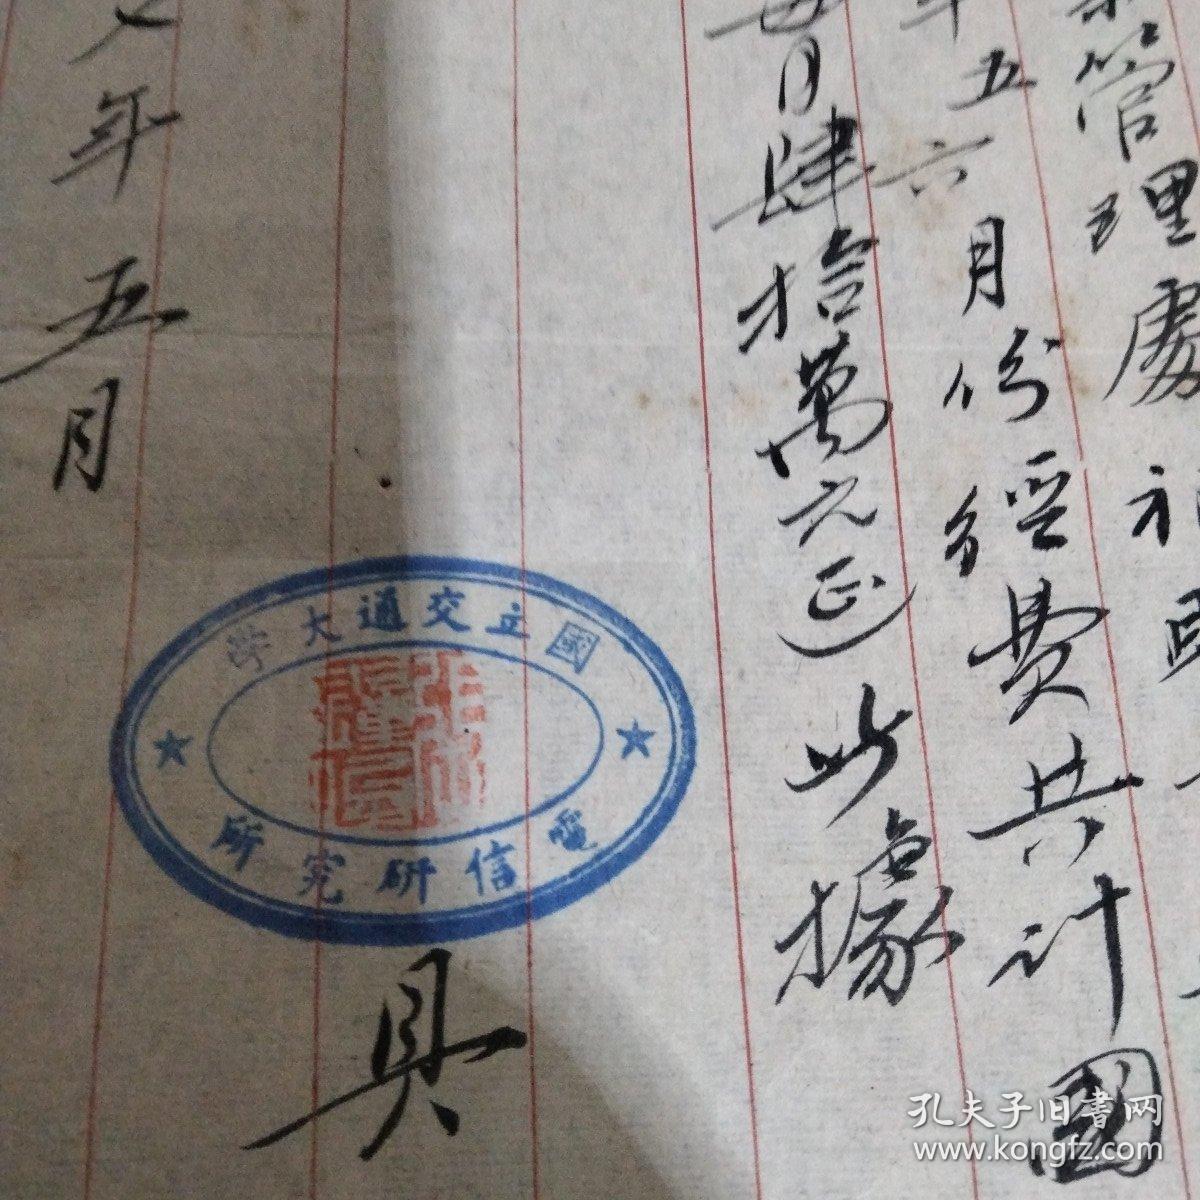 管理處
年五六月份經費共計國
每月肆拾萬元正此據
國立交通大學
電信研究所
具
年五月
孔夫子旧书网
www.kongfz.com